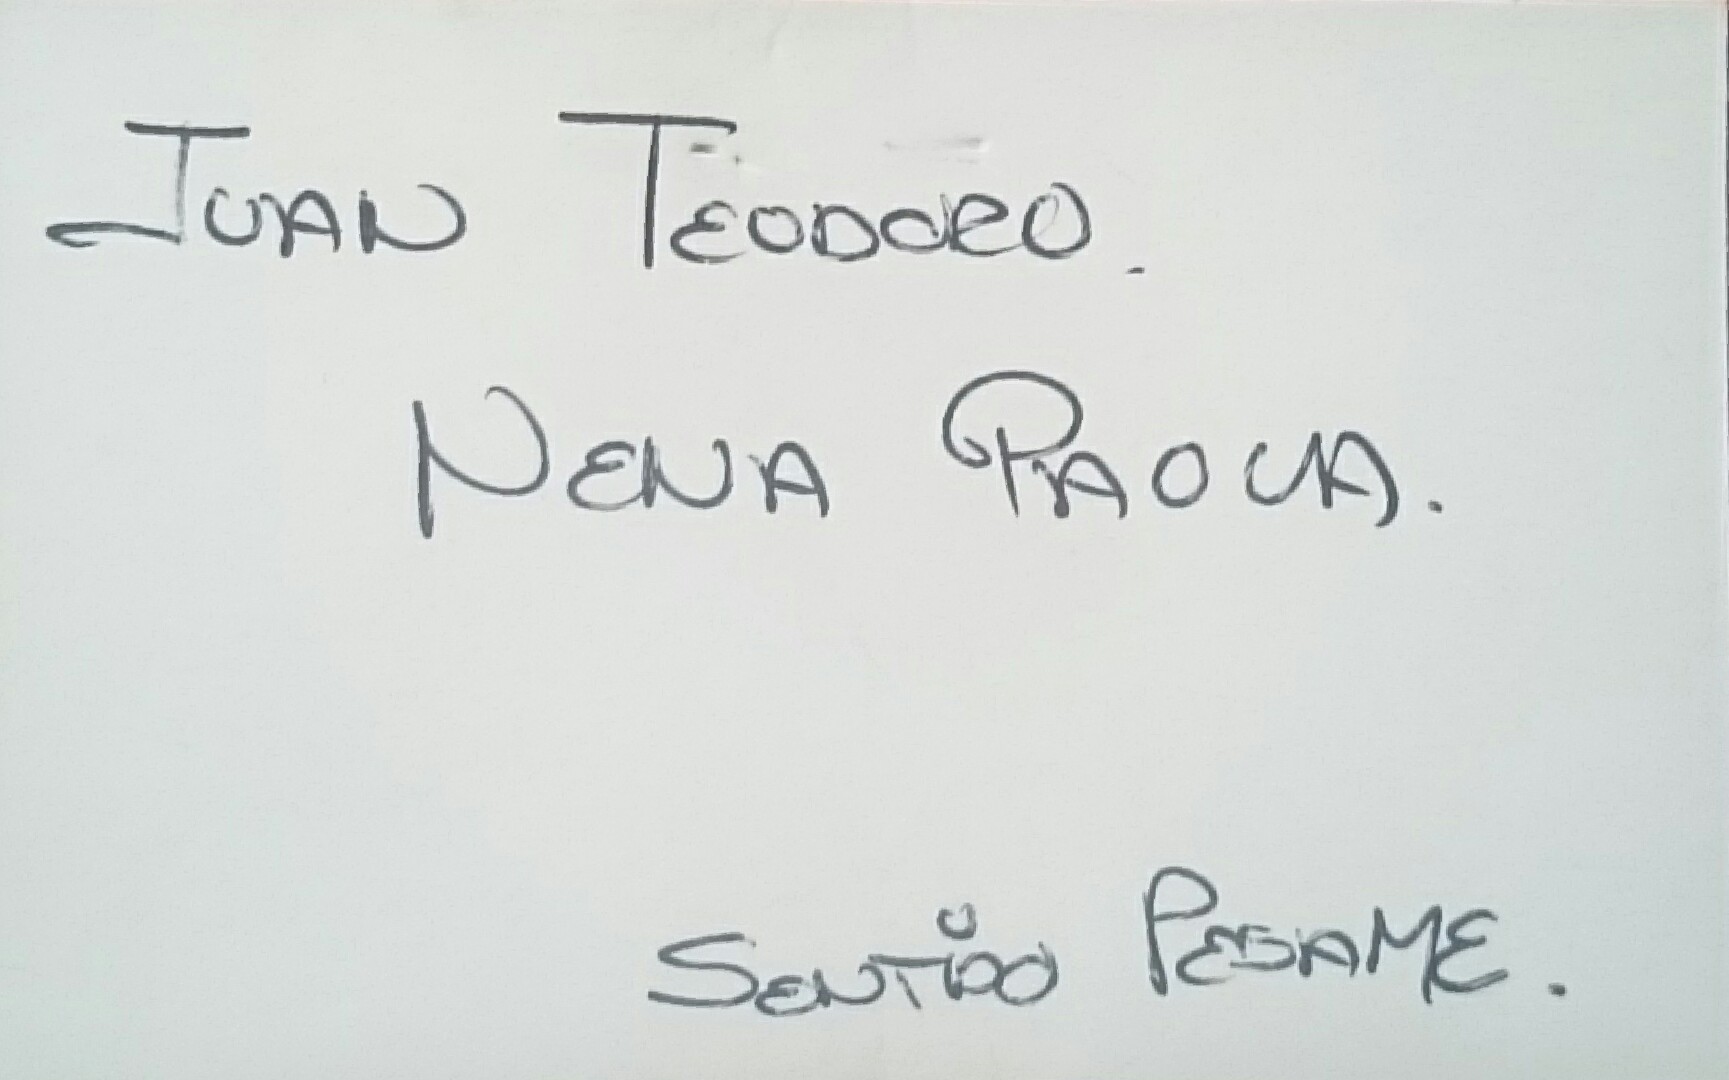 JUAN TEODORO.
NENA PAOLA.
SENTIDO PESAME.